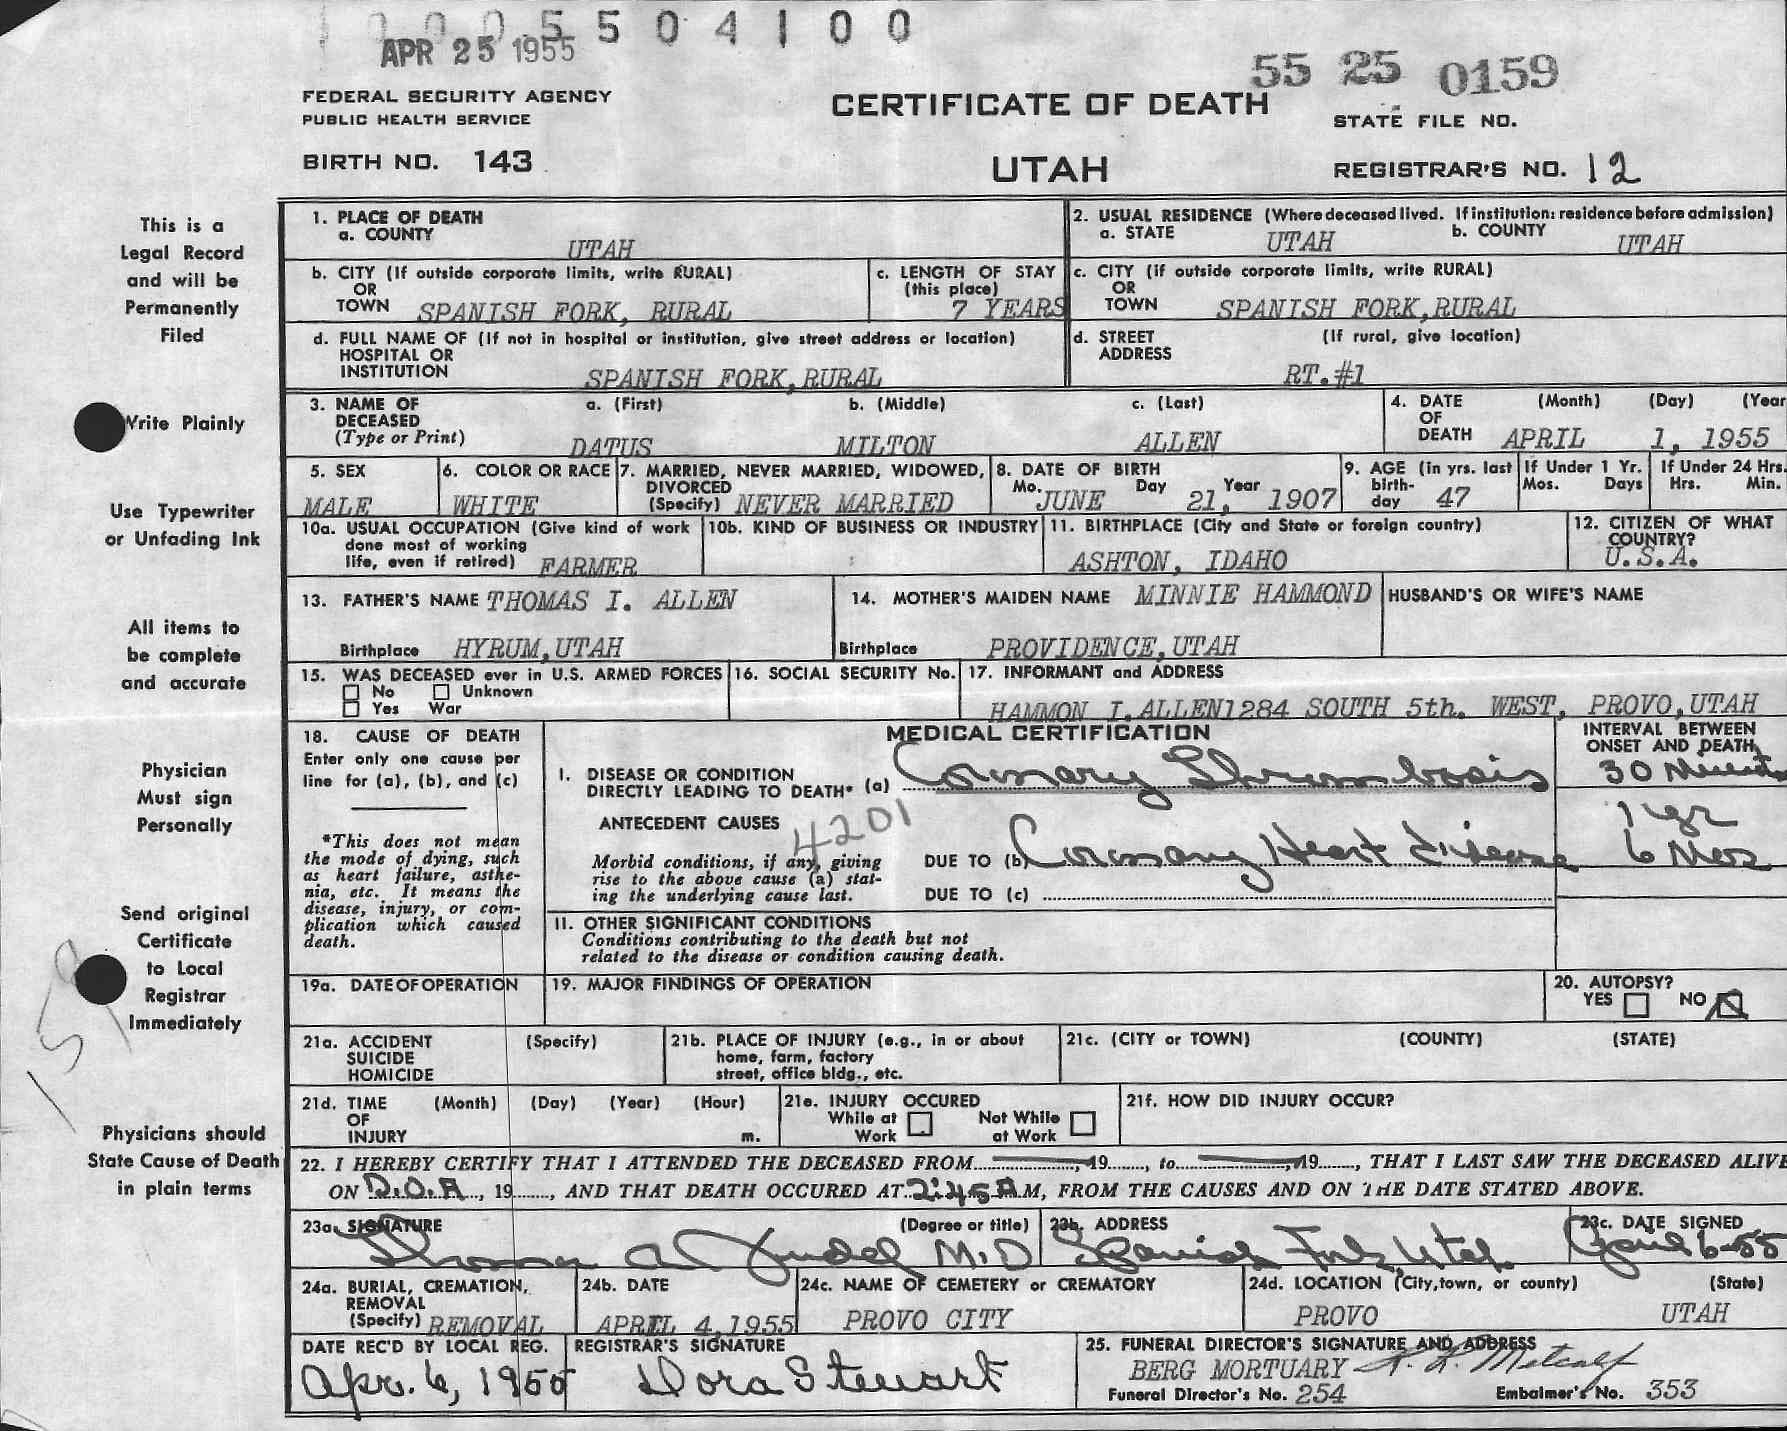 1 0 0 0 5 5 0 4 1 0 0
APR 25 1955
55 25 0159
FEDERAL SECURITY AGENCY
PUBLIC HEALTH SERVICE
CERTIFICATE OF DEATH
STATE FILE NO.
BIRTH NO. 143
UTAH
REGISTRAR'S NO. 12
This is a
Legal Record
and will be
Permanently
Filed
Write Plainly
Use Typewriter
or Unfading Ink
All items to
be complete
and accurate
Physician
Must sign
Personally
Send original
Certificate
to Local
Registrar
Immediately
159
Physicians should
State Cause of Death
in plain terms
1. PLACE OF DEATH
a. COUNTY
UTAH
2. USUAL RESIDENCE (Where deceased lived. If institution: residence before admission)
a. STATE UTAH b. COUNTY UTAH
b. CITY (If outside corporate limits, write RURAL)
OR
TOWN SPANISH FORK, RURAL
c. LENGTH OF STAY
(this place)
7 YEARS
c. CITY (if outside corporate limits, write RURAL)
OR
TOWN SPANISH FORK, RURAL
d. FULL NAME OF (If not in hospital or institution, give street address or location)
HOSPITAL OR
INSTITUTION SPANISH FORK, RURAL
d. STREET (If rural, give location)
ADDRESS
RT.#1
3. NAME OF a. (First) b. (Middle) c. (Last)
DECEASED
(Type or Print) DATUS MILTON ALLEN
4. DATE (Month) (Day) (Year
OF
DEATH APRIL 1, 1955
5. SEX
MALE
6. COLOR OR RACE
WHITE
7. MARRIED, NEVER MARRIED, WIDOWED,
DIVORCED
(Specify) NEVER MARRIED
8. DATE OF BIRTH
Mo. Day Year
JUNE 21, 1907
9. AGE (in yrs. last
birth-
day 47
If Under 1 Yr.
Mos. Days
If Under 24 Hrs.
Hrs. Min.
10a. USUAL OCCUPATION (Give kind of work
done most of working
life, even if retired) FARMER
10b. KIND OF BUSINESS OR INDUSTRY
11. BIRTHPLACE (City and State or foreign country)
ASHTON, IDAHO
12. CITIZEN OF WHAT
COUNTRY?
U.S.A.
13. FATHER'S NAME THOMAS I. ALLEN
Birthplace HYRUM, UTAH
14. MOTHER'S MAIDEN NAME MINNIE HAMMOND
Birthplace PROVIDENCE, UTAH
HUSBAND'S OR WIFE'S NAME
15. WAS DECEASED ever in U.S. ARMED FORCES
No Unknown
Yes War
16. SOCIAL SECURITY No.
17. INFORMANT and ADDRESS
HAMMON I. ALLEN 1284 SOUTH 5th. WEST, PROVO, UTAH
18. CAUSE OF DEATH
Enter only one cause per
line for (a), (b), and (c)
*This does not mean
the mode of dying, such
as heart failure, asthe-
nia, etc. It means the
disease, injury, or com-
plication which caused
death.
MEDICAL CERTIFICATION
INTERVAL BETWEEN
ONSET AND DEATH
I. DISEASE OR CONDITION
DIRECTLY LEADING TO DEATH* (a) Coronary Thrombosis
30 Minutes
ANTECEDENT CAUSES
4201
Morbid conditions, if any, giving
rise to the above cause (a) stat-
ing the underlying cause last.
DUE TO (b) Coronary Heart Disease
1 yr
6 Mos
DUE TO (c)
II. OTHER SIGNIFICANT CONDITIONS
Conditions contributing to the death but not
related to the disease or condition causing death.
19a. DATE OF OPERATION
19. MAJOR FINDINGS OF OPERATION
20. AUTOPSY?
YES NO
21a. ACCIDENT (Specify)
SUICIDE
HOMICIDE
21b. PLACE OF INJURY (e.g., in or about
home, farm, factory
street, office bldg., etc.
21c. (CITY or TOWN) (COUNTY) (STATE)
21d. TIME (Month) (Day) (Year) (Hour)
OF
INJURY m.
21e. INJURY OCCURED
While at Work
Not While at Work
21f. HOW DID INJURY OCCUR?
22. I HEREBY CERTIFY THAT I ATTENDED THE DECEASED FROM , 19 , to , 19 , THAT I LAST SAW THE DECEASED ALIVE
ON D.O.A , 19 , AND THAT DEATH OCCURED AT 2:45 A M, FROM THE CAUSES AND ON THE DATE STATED ABOVE.
23a. SIGNATURE (Degree or title)
M.D
23b. ADDRESS
Spanish Fork, Utah
23c. DATE SIGNED
April 6-55
24a. BURIAL, CREMATION,
REMOVAL
(Specify) REMOVAL
24b. DATE
APRIL 4, 1955
24c. NAME OF CEMETERY or CREMATORY
PROVO CITY
24d. LOCATION (City, town, or county) (State)
PROVO UTAH
DATE REC'D BY LOCAL REG.
Apr. 6, 1955
REGISTRAR'S SIGNATURE
Dora Stewart
25. FUNERAL DIRECTOR'S SIGNATURE AND ADDRESS
BERG MORTUARY Metcalf
Funeral Director's No. 254 Embalmer's No. 353